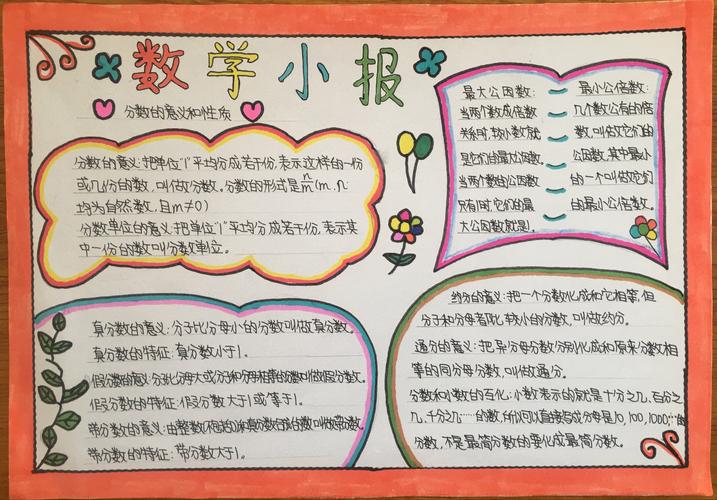 数学小报
分数的意义和性质
分数的意义:把单位"1"平均分成若干份,表示这样的一份
或几份的数,叫做分数。分数的形式是n/m(m、n
均为自然数,且m≠0)
分数单位的意义:把单位"1"平均分成若干份,表示其
中一份的数叫分数单位。
最大公因数:
当两个数成倍数
关系时,较小数就
是它们的最大公因数。
当两个数的公因数
只有1时,它们的最
大公因数就是1。
最小公倍数:
几个数公有的倍
数,叫做它们的
公因数,其中最小
的一个叫做它们
的最小公倍数。
真分数的意义:分子比分母小的分数叫做真分数。
真分数的特征:真分数小于1。
假分数的意义:分子比分母大或分子和分母相等的分数叫做假分数。
假分数的特征:假分数大于1或等于1。
带分数的意义:由整数(不包括0)和真分数合成的数叫做带分数。
带分数的特征:带分数大于1。
约分的意义:把一个分数化成和它相等,但
分子和分母都比较小的分数,叫做约分。
通分的意义:把异分母分数分别化成和原来分数相
等的同分母分数,叫做通分。
分数和小数的互化:小数表示的就是十分之几、百分之
几、千分之几……的数,所以可以直接写成分母是10,100,1000,…的
分数,不是最简分数的要化成最简分数。